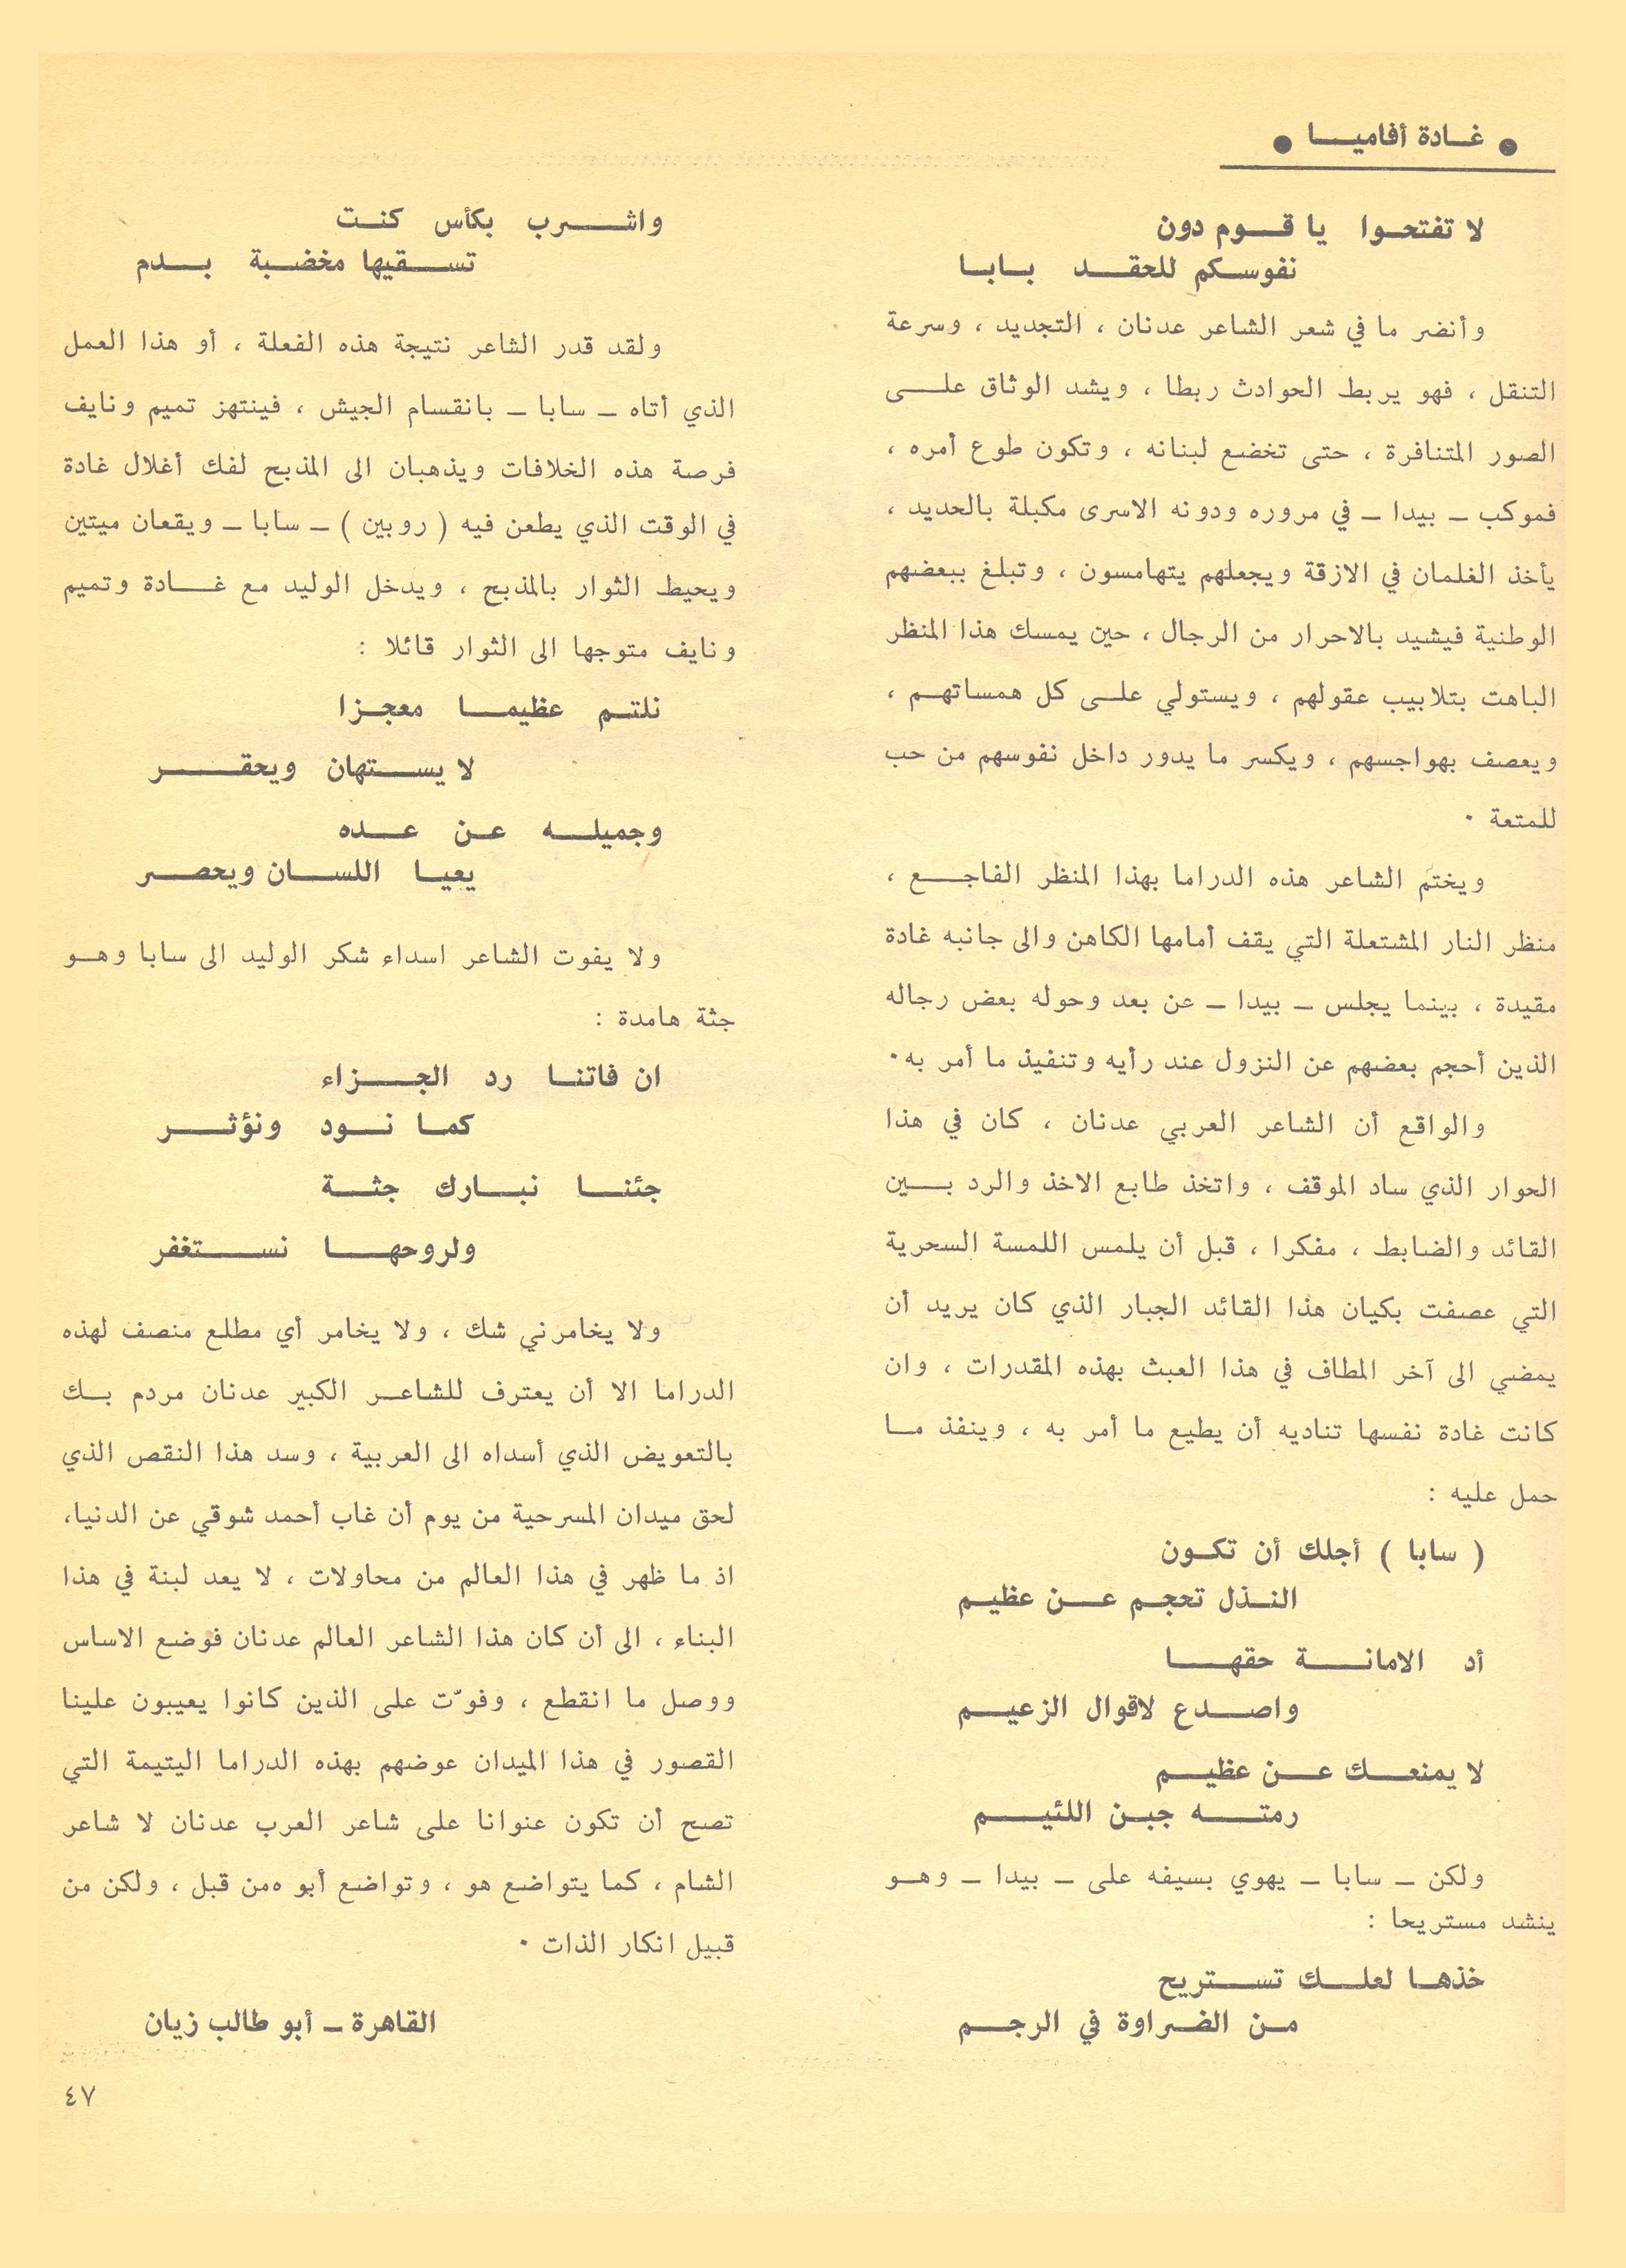 ● غادة أفاميا ●
لا تفتحوا يا قوم دون
نفوسكم للحقد بابا
وأنضر ما في شعر الشاعر عدنان ، التجديد ، وسرعة
التنقل ، فهو يربط الحوادث ربطا ، ويشد الوثاق على
الصور المتنافرة ، حتى تخضع لبنانه ، وتكون طوع أمره ،
فموكب ــ بيدا ــ في مروره ودونه الاسرى مكبلة بالحديد ،
يأخذ الغلمان في الازقة ويجعلهم يتهامسون ، وتبلغ ببعضهم
الوطنية فيشيد بالاحرار من الرجال ، حين يمسك هذا المنظر
الباهت بتلابيب عقولهم ، ويستولي على كل همساتهم ،
ويعصف بهواجسهم ، ويكسر ما يدور داخل نفوسهم من حب
للمتعة ٠
ويختم الشاعر هذه الدراما بهذا المنظر الفاجع ،
منظر النار المشتعلة التي يقف أمامها الكاهن والى جانبه غادة
مقيدة ، بينما يجلس ــ بيدا ــ عن بعد وحوله بعض رجاله
الذين أحجم بعضهم عن النزول عند رأيه وتنفيذ ما أمر به ٠
والواقع أن الشاعر العربي عدنان ، كان في هذا
الحوار الذي ساد الموقف ، واتخذ طابع الاخذ والرد بين
القائد والضابط ، مفكرا ، قبل أن يلمس اللمسة السحرية
التي عصفت بكيان هذا القائد الجبار الذي كان يريد أن
يمضي الى آخر المطاف في هذا العبث بهذه المقدرات ، وان
كانت غادة نفسها تناديه أن يطيع ما أمر به ، وينفذ ما
حمل عليه :
( سابا ) أجلك أن تكون
النذل تحجم عن عظيم
أد الامانة حقها
واصدع لاقوال الزعيم
لا يمنعك عن عظيم
رمته جبن اللئيم
ولكن ــ سابا ــ يهوي بسيفه على ــ بيدا ــ وهو
ينشد مستريحا :
خذها لعلك تستريح
من الضراوة في الرجم
واشرب بكأس كنت
تسقيها مخضبة بدم
ولقد قدر الشاعر نتيجة هذه الفعلة ، أو هذا العمل
الذي أتاه ــ سابا ــ بانقسام الجيش ، فينتهز تميم ونايف
فرصة هذه الخلافات ويذهبان الى المذبح لفك أغلال غادة
في الوقت الذي يطعن فيه ( روبين ) ــ سابا ــ ويقعان ميتين
ويحيط الثوار بالمذبح ، ويدخل الوليد مع غادة وتميم
ونايف متوجها الى الثوار قائلا :
نلتم عظيما معجزا
لا يستهان ويحقر
وجميله عن عده
يعيا اللسان ويحصر
ولا يفوت الشاعر اسداء شكر الوليد الى سابا وهو
جثة هامدة :
ان فاتنا رد الجزاء
كما نود ونؤثر
جئنا نبارك جثة
ولروحها نستغفر
ولا يخامرني شك ، ولا يخامر أي مطلع منصف لهذه
الدراما الا أن يعترف للشاعر الكبير عدنان مردم بك
بالتعويض الذي أسداه الى العربية ، وسد هذا النقص الذي
لحق ميدان المسرحية من يوم أن غاب أحمد شوقي عن الدنيا،
اذ ما ظهر في هذا العالم من محاولات ، لا يعد لبنة في هذا
البناء ، الى أن كان هذا الشاعر العالم عدنان فوضع الاساس
ووصل ما انقطع ، وفوّت على الذين كانوا يعيبون علينا
القصور في هذا الميدان عوضهم بهذه الدراما اليتيمة التي
تصح أن تكون عنوانا على شاعر العرب عدنان لا شاعر
الشام ، كما يتواضع هو ، وتواضع أبو ه من قبل ، ولكن من
قبيل انكار الذات ٠
القاهرة ــ أبو طالب زيان
٤٧